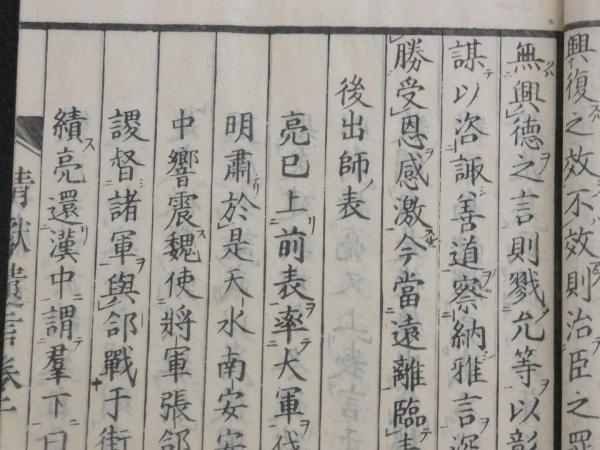 興復之效不效則治臣之罪
無興德之言則戮允等以彰
謀以咨諏善道察納雅言深
勝受恩感激今當遠離臨表
後出師表
亮已上前表率大軍伐
明肅於是天水南安安
中響震魏使將軍張郃
謖督諸軍與郃戰于街
績亮還漢中謂羣下曰
靖獻遺言卷上